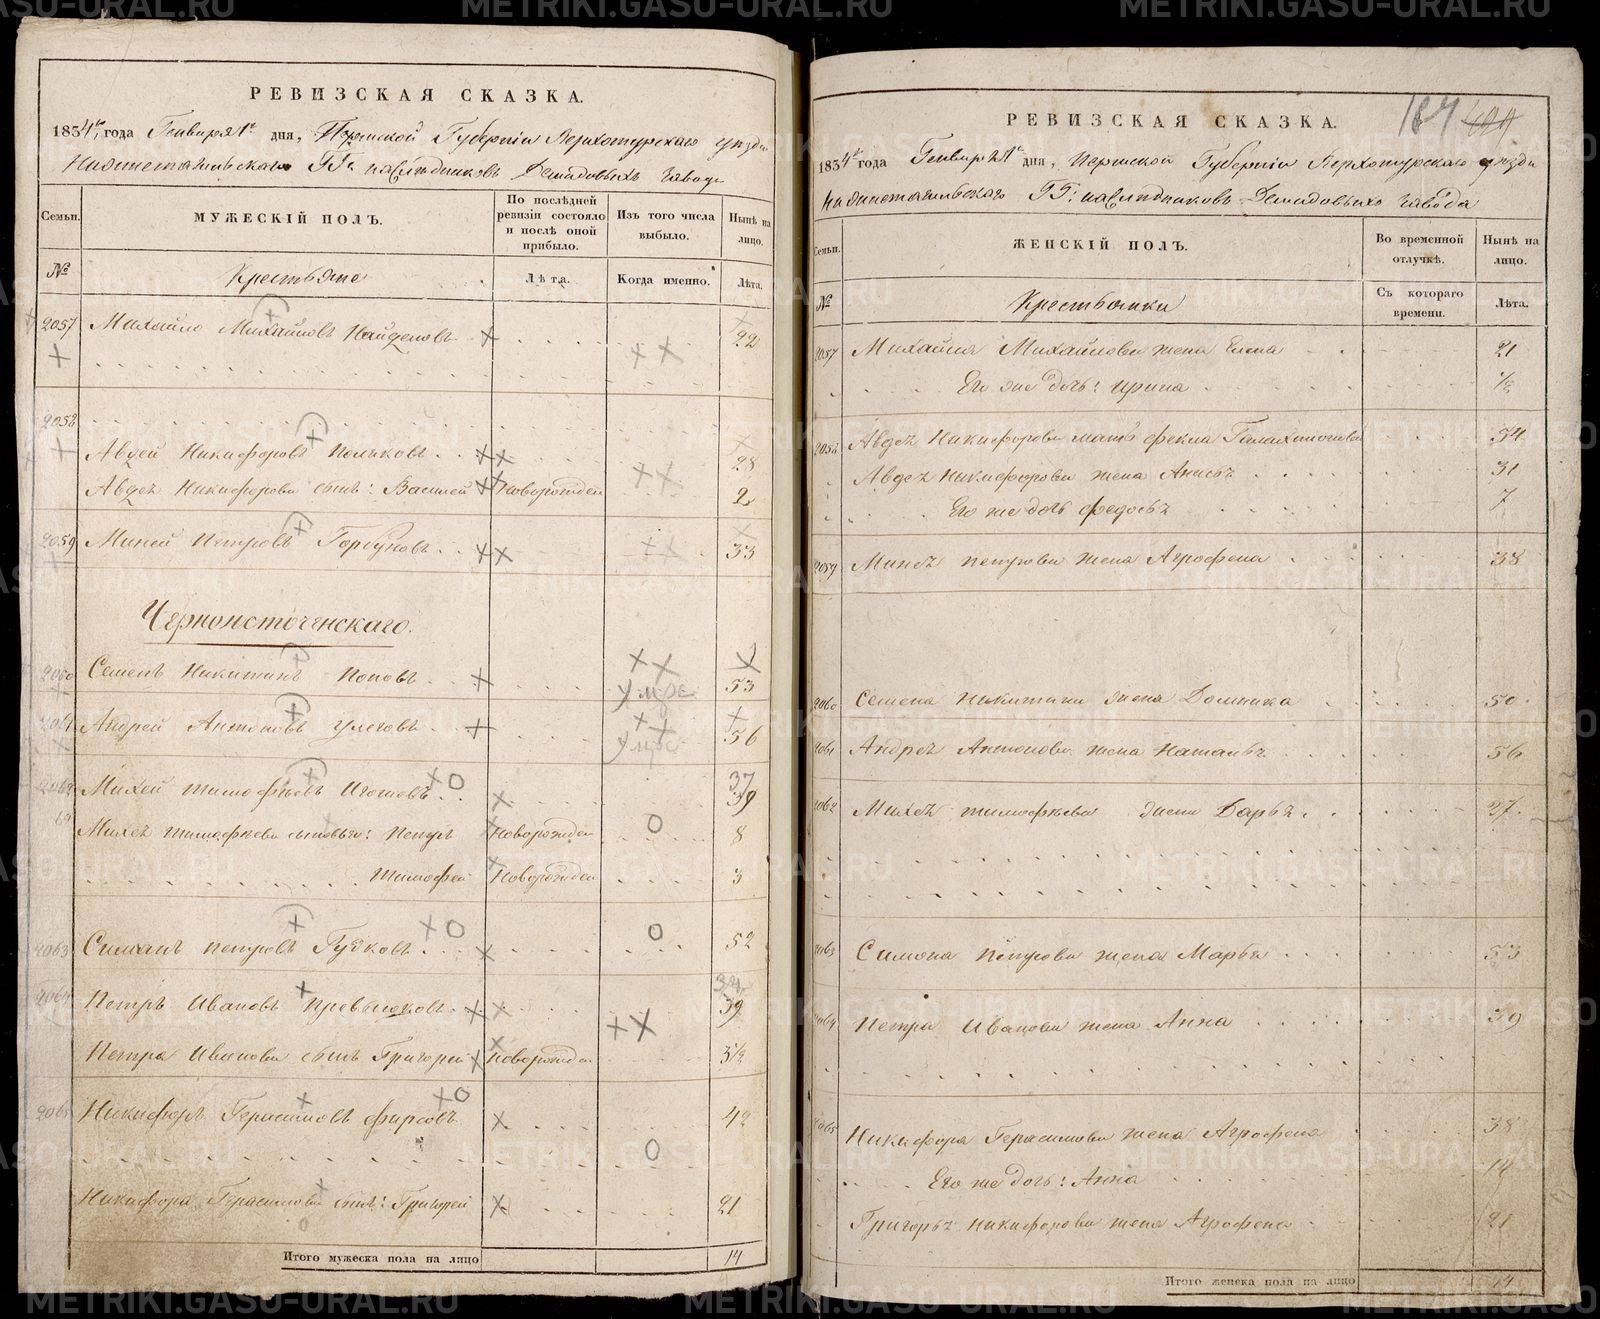 РЕВИЗСКАЯ СКАЗКА.
1834 года Генваря 1 дня, Пермской Губерніи Верхотурскаго уезда
Нижнетагильскаго ГГ: наследниковъ Демидовыхъ завода
Семьи.
МУЖЕСКІЙ ПОЛЪ.
По послѣдней ревизіи состояло и послѣ оной прибыло.
Изъ того числа выбыло.
Нынѣ на лицо.
№
Крестьяне
Лѣта.
Когда именно.
Лѣта.
2057 Михайло Михайловъ Найденовъ 22
2058
Авдей Никифоровъ Поляковъ 28
Авдея Никифорова сынъ: Василей Новорожден 2
2059 Миней Петровъ Горбуновъ 33
Черноисточенскаго.
2060 Семенъ Никитинъ Поповъ умре 53
2061 Андрей Антоновъ умре 56
2062 Михей Тимофеевъ 37 39
Михея Тимофеева сыновья: Петръ Новорожден 8
Тимофей Новорожден 3
2063 Симонъ Петровъ Гудковъ 52
2064 Петръ Ивановъ 39
Петра Иванова сынъ Григорей Новорожден 3½
2065 Никифоръ Герасимовъ Фирсовъ 42
Никифора Герасимова сынъ: Григорей 21
Итого мужеска пола на лицо 14
184
РЕВИЗСКАЯ СКАЗКА.
1834 года Генваря 1 дня, Пермской Губерніи Верхотурскаго уезда
Нижнетагильскаго ГГ: наследниковъ Демидовыхъ завода
Семьи.
ЖЕНСКІЙ ПОЛЪ.
Во временной отлучкѣ.
Нынѣ на лицо.
№
Крестьянки
Съ котораго времени.
Лѣта.
2057 Михайла Михайлова жена Елена 21
Его же дочь: Ирина ½
2058 Авдея Никифорова мать Фекла 54
Авдея Никифорова жена Анисья 31
Его же дочь Федосья 7
2059 Минея Петрова жена Агрофена 38
2060 Семена Никитина жена Домника 50
2061 Андрея Антонова жена Наталья 56
2062 Михея Тимофеева жена Дарья 27
2063 Симона Петрова жена Марья 53
2064 Петра Иванова жена Анна 39
2065 Никифора Герасимова жена Агрофена 38
Его же дочь: Анна 14
Григорья Никифорова жена Агрофена 21
Итого женска пола на лицо 14
METRIKI.GASO-URAL.RU